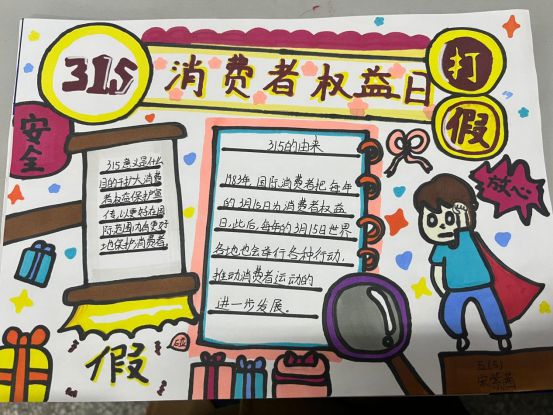 315
消费者权益日
打
假
安全
放心
315的由来
1983年,国际消费者把每年
的3月15日为消费者权益
日,此后,每年的3月15日世界
各地也会举行各种行动,
推动消费者运动的
进一步发展。
315意义是什么
目的于扩大消费
者权益保护宣
传,以更好在国
际范围内为更好
地保护消费者。
假
五(5)